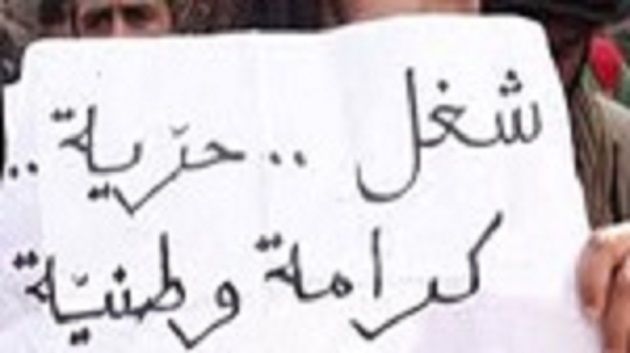 شغل .. حرّية ..
كرامة وطنيّة